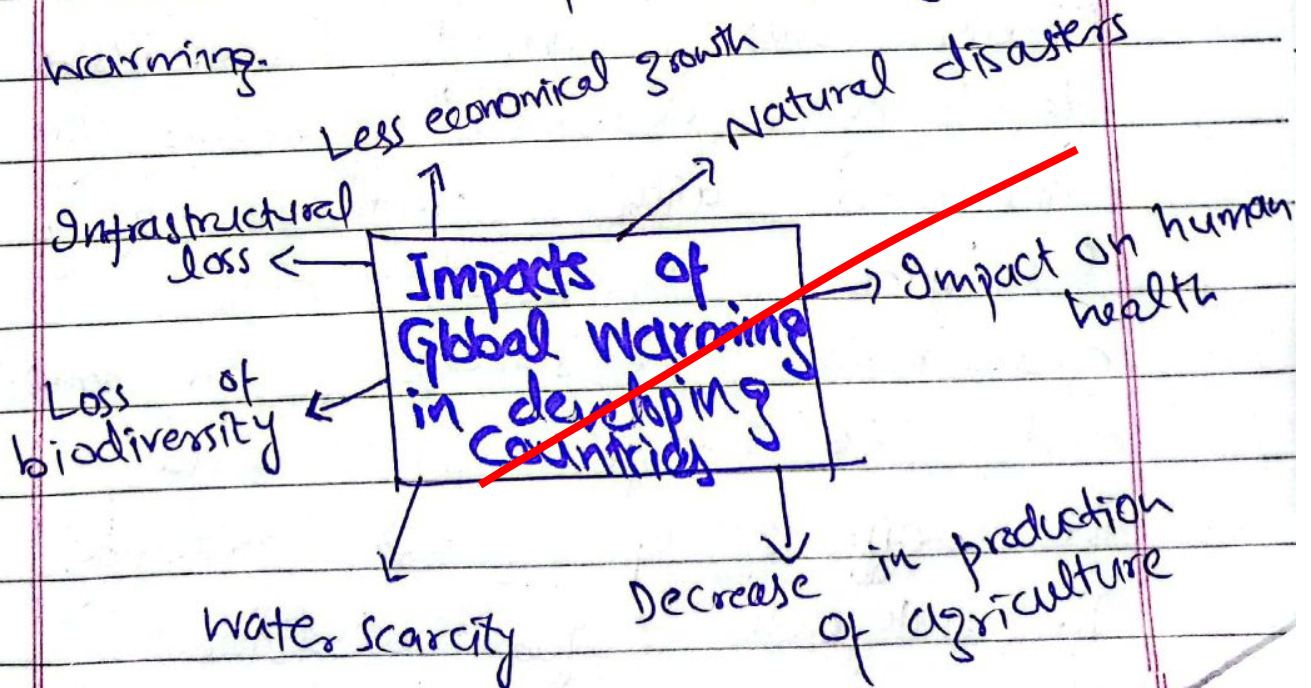 warming.
Less economical growth
Natural disasters
Infrastructural
loss
Impacts of
Global Warming
in developing
Countries
Impact on human
health
Loss of
biodiversity
Water scarcity
Decrease in production
of agriculture